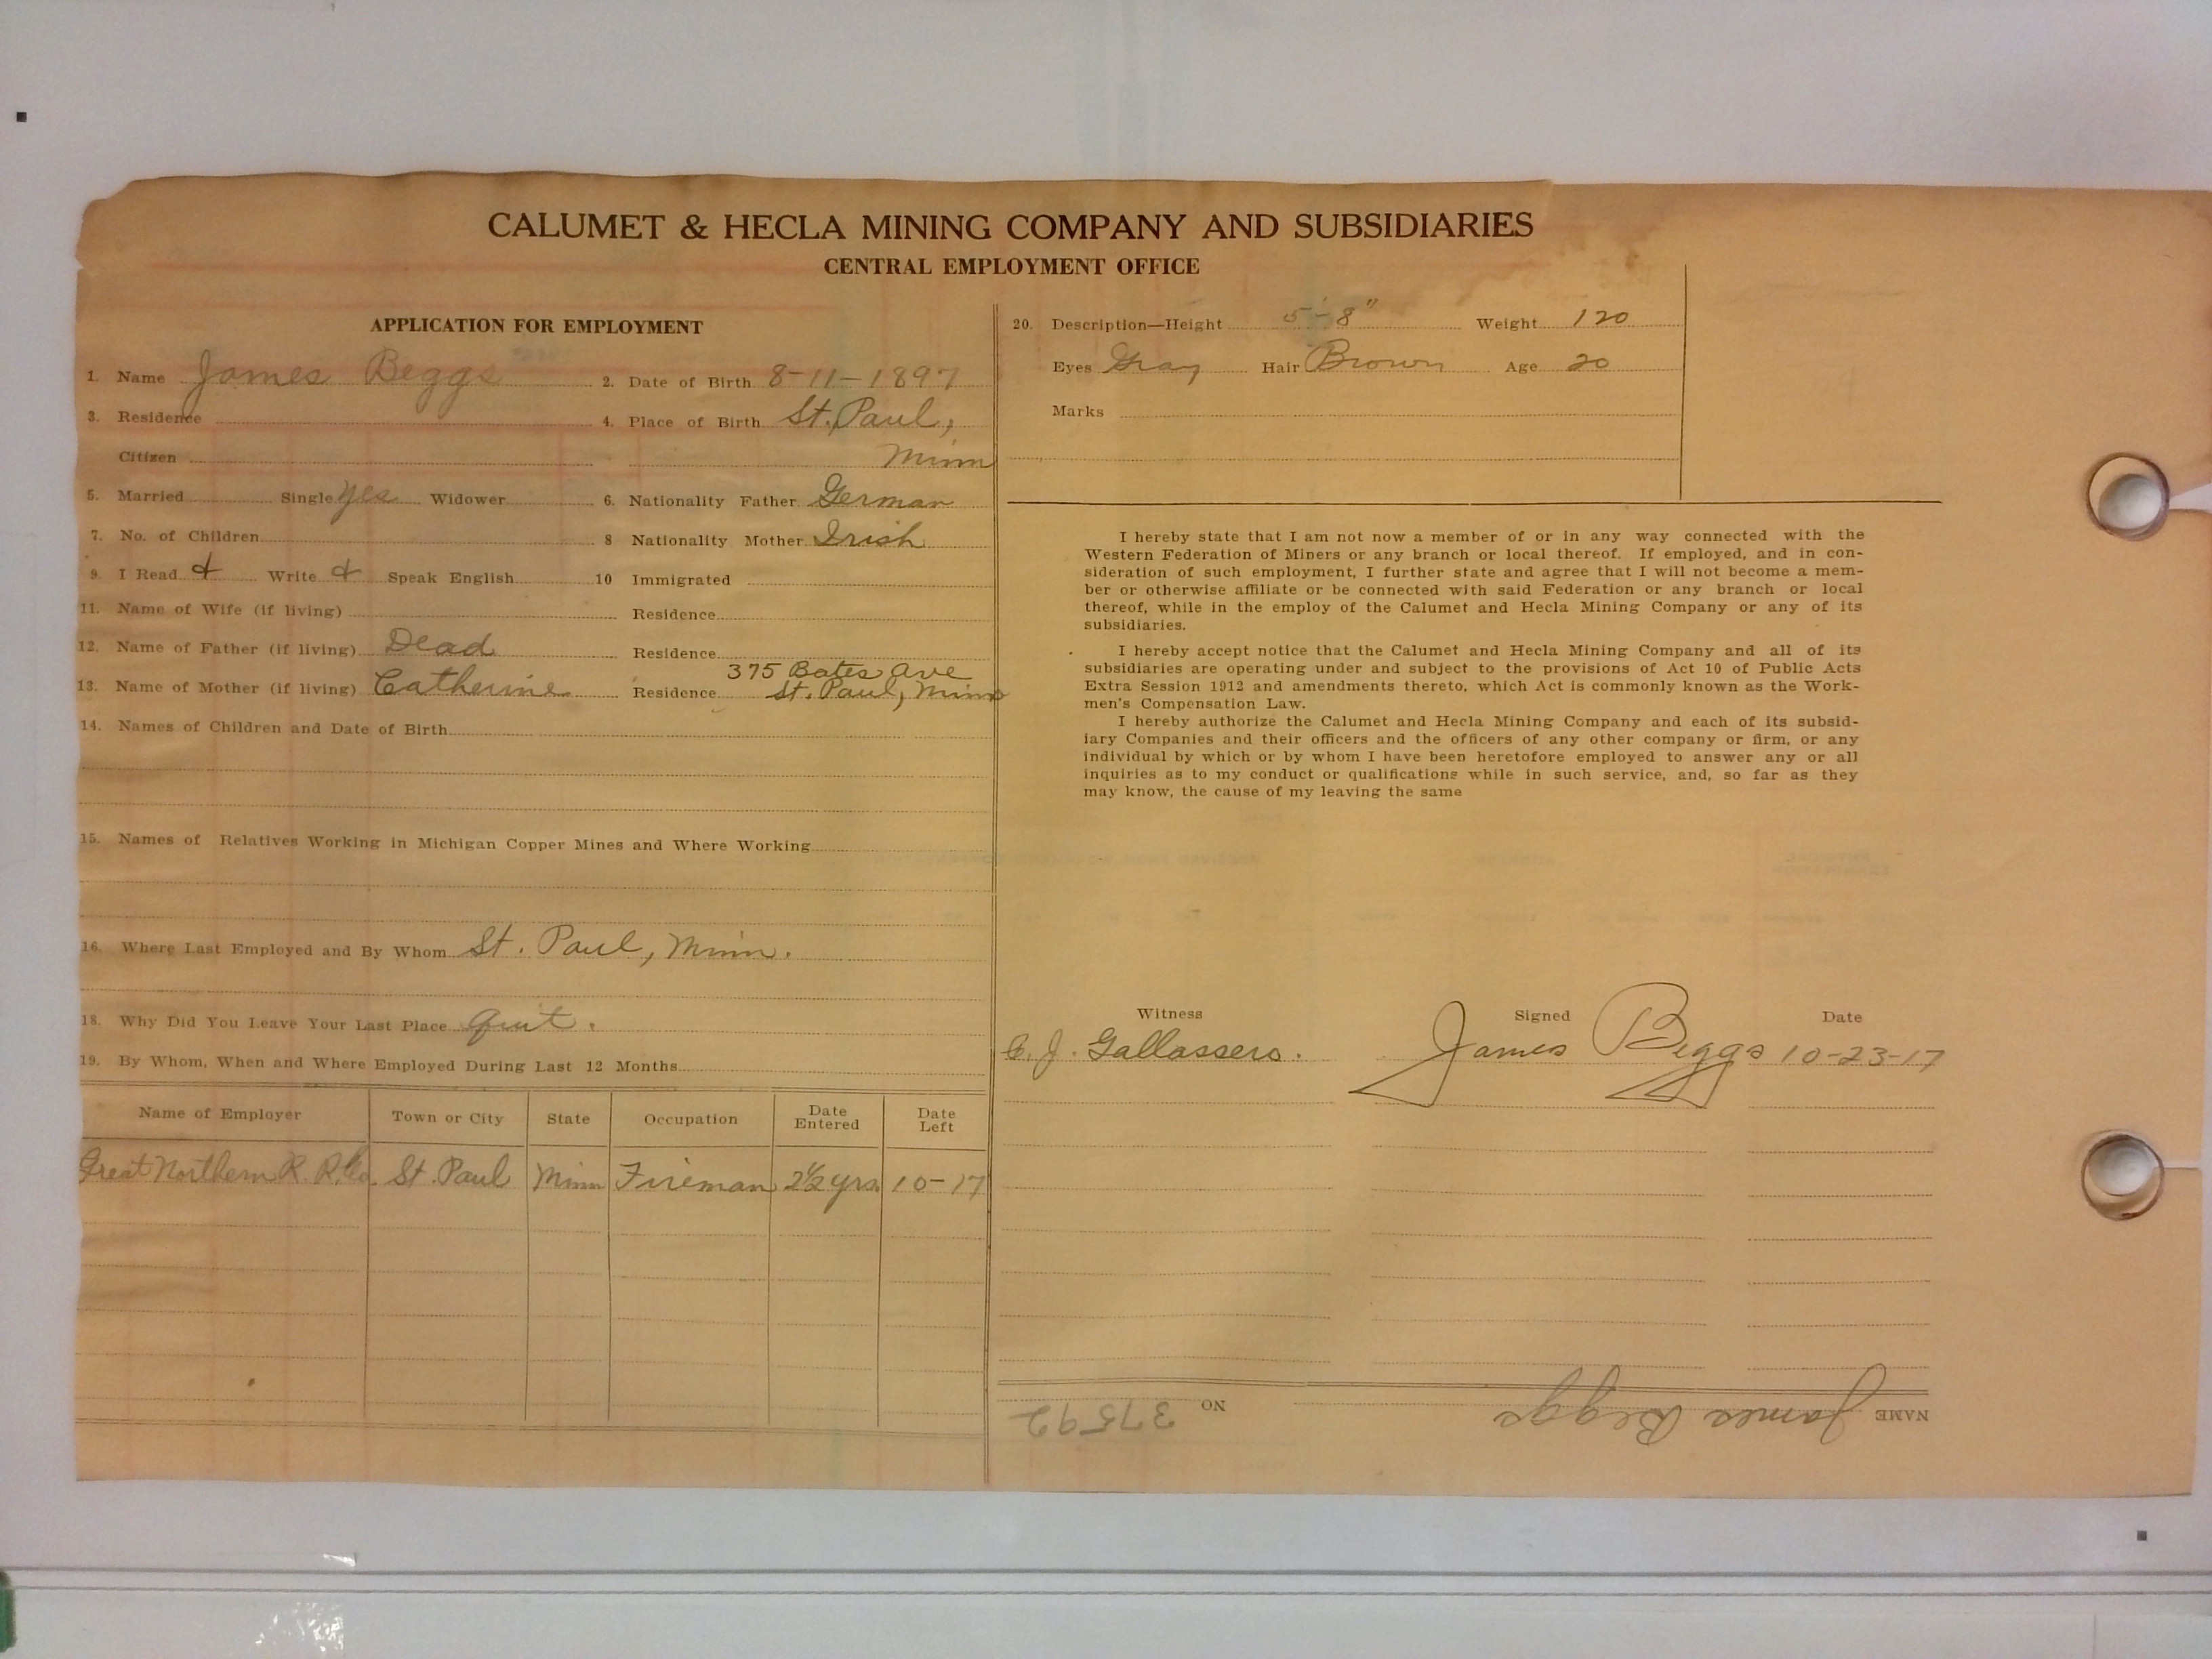 CALUMET & HECLA MINING COMPANY AND SUBSIDIARIES
CENTRAL EMPLOYMENT OFFICE
APPLICATION FOR EMPLOYMENT
1. Name James Beggs 2. Date of Birth 8-11-1897
3. Residence 4. Place of Birth St. Paul,
Citizen Minn
5. Married Single Yes Widower 6. Nationality Father German
7. No. of Children 8 Nationality Mother Irish
9. I Read & Write & Speak English 10 Immigrated
11. Name of Wife (if living) Residence
12. Name of Father (if living) Dead Residence
375 Bates Ave
13. Name of Mother (if living) Catherine Residence St. Paul, Minn
14. Names of Children and Date of Birth
15. Names of Relatives Working in Michigan Copper Mines and Where Working
16. Where Last Employed and By Whom St. Paul, Minn.
18. Why Did You Leave Your Last Place Quit.
19. By Whom, When and Where Employed During Last 12 Months
Name of Employer Town or City State Occupation Date Entered Date Left
Great Northern R. R. Co. St. Paul Minn Fireman 2½ yrs. 10-17
20. Description—Height 5'-8" Weight 120
Eyes Gray Hair Brown Age 20
Marks
I hereby state that I am not now a member of or in any way connected with the
Western Federation of Miners or any branch or local thereof. If employed, and in con-
sideration of such employment, I further state and agree that I will not become a mem-
ber or otherwise affiliate or be connected with said Federation or any branch or local
thereof, while in the employ of the Calumet and Hecla Mining Company or any of its
subsidiaries.
I hereby accept notice that the Calumet and Hecla Mining Company and all of its
subsidiaries are operating under and subject to the provisions of Act 10 of Public Acts
Extra Session 1912 and amendments thereto, which Act is commonly known as the Work-
men's Compensation Law.
I hereby authorize the Calumet and Hecla Mining Company and each of its subsid-
iary Companies and their officers and the officers of any other company or firm, or any
individual by which or by whom I have been heretofore employed to answer any or all
inquiries as to my conduct or qualifications while in such service, and, so far as they
may know, the cause of my leaving the same
Witness Signed Date
J. Gallassero. James Beggs 10-23-17
NAME James Beggs NO 37592